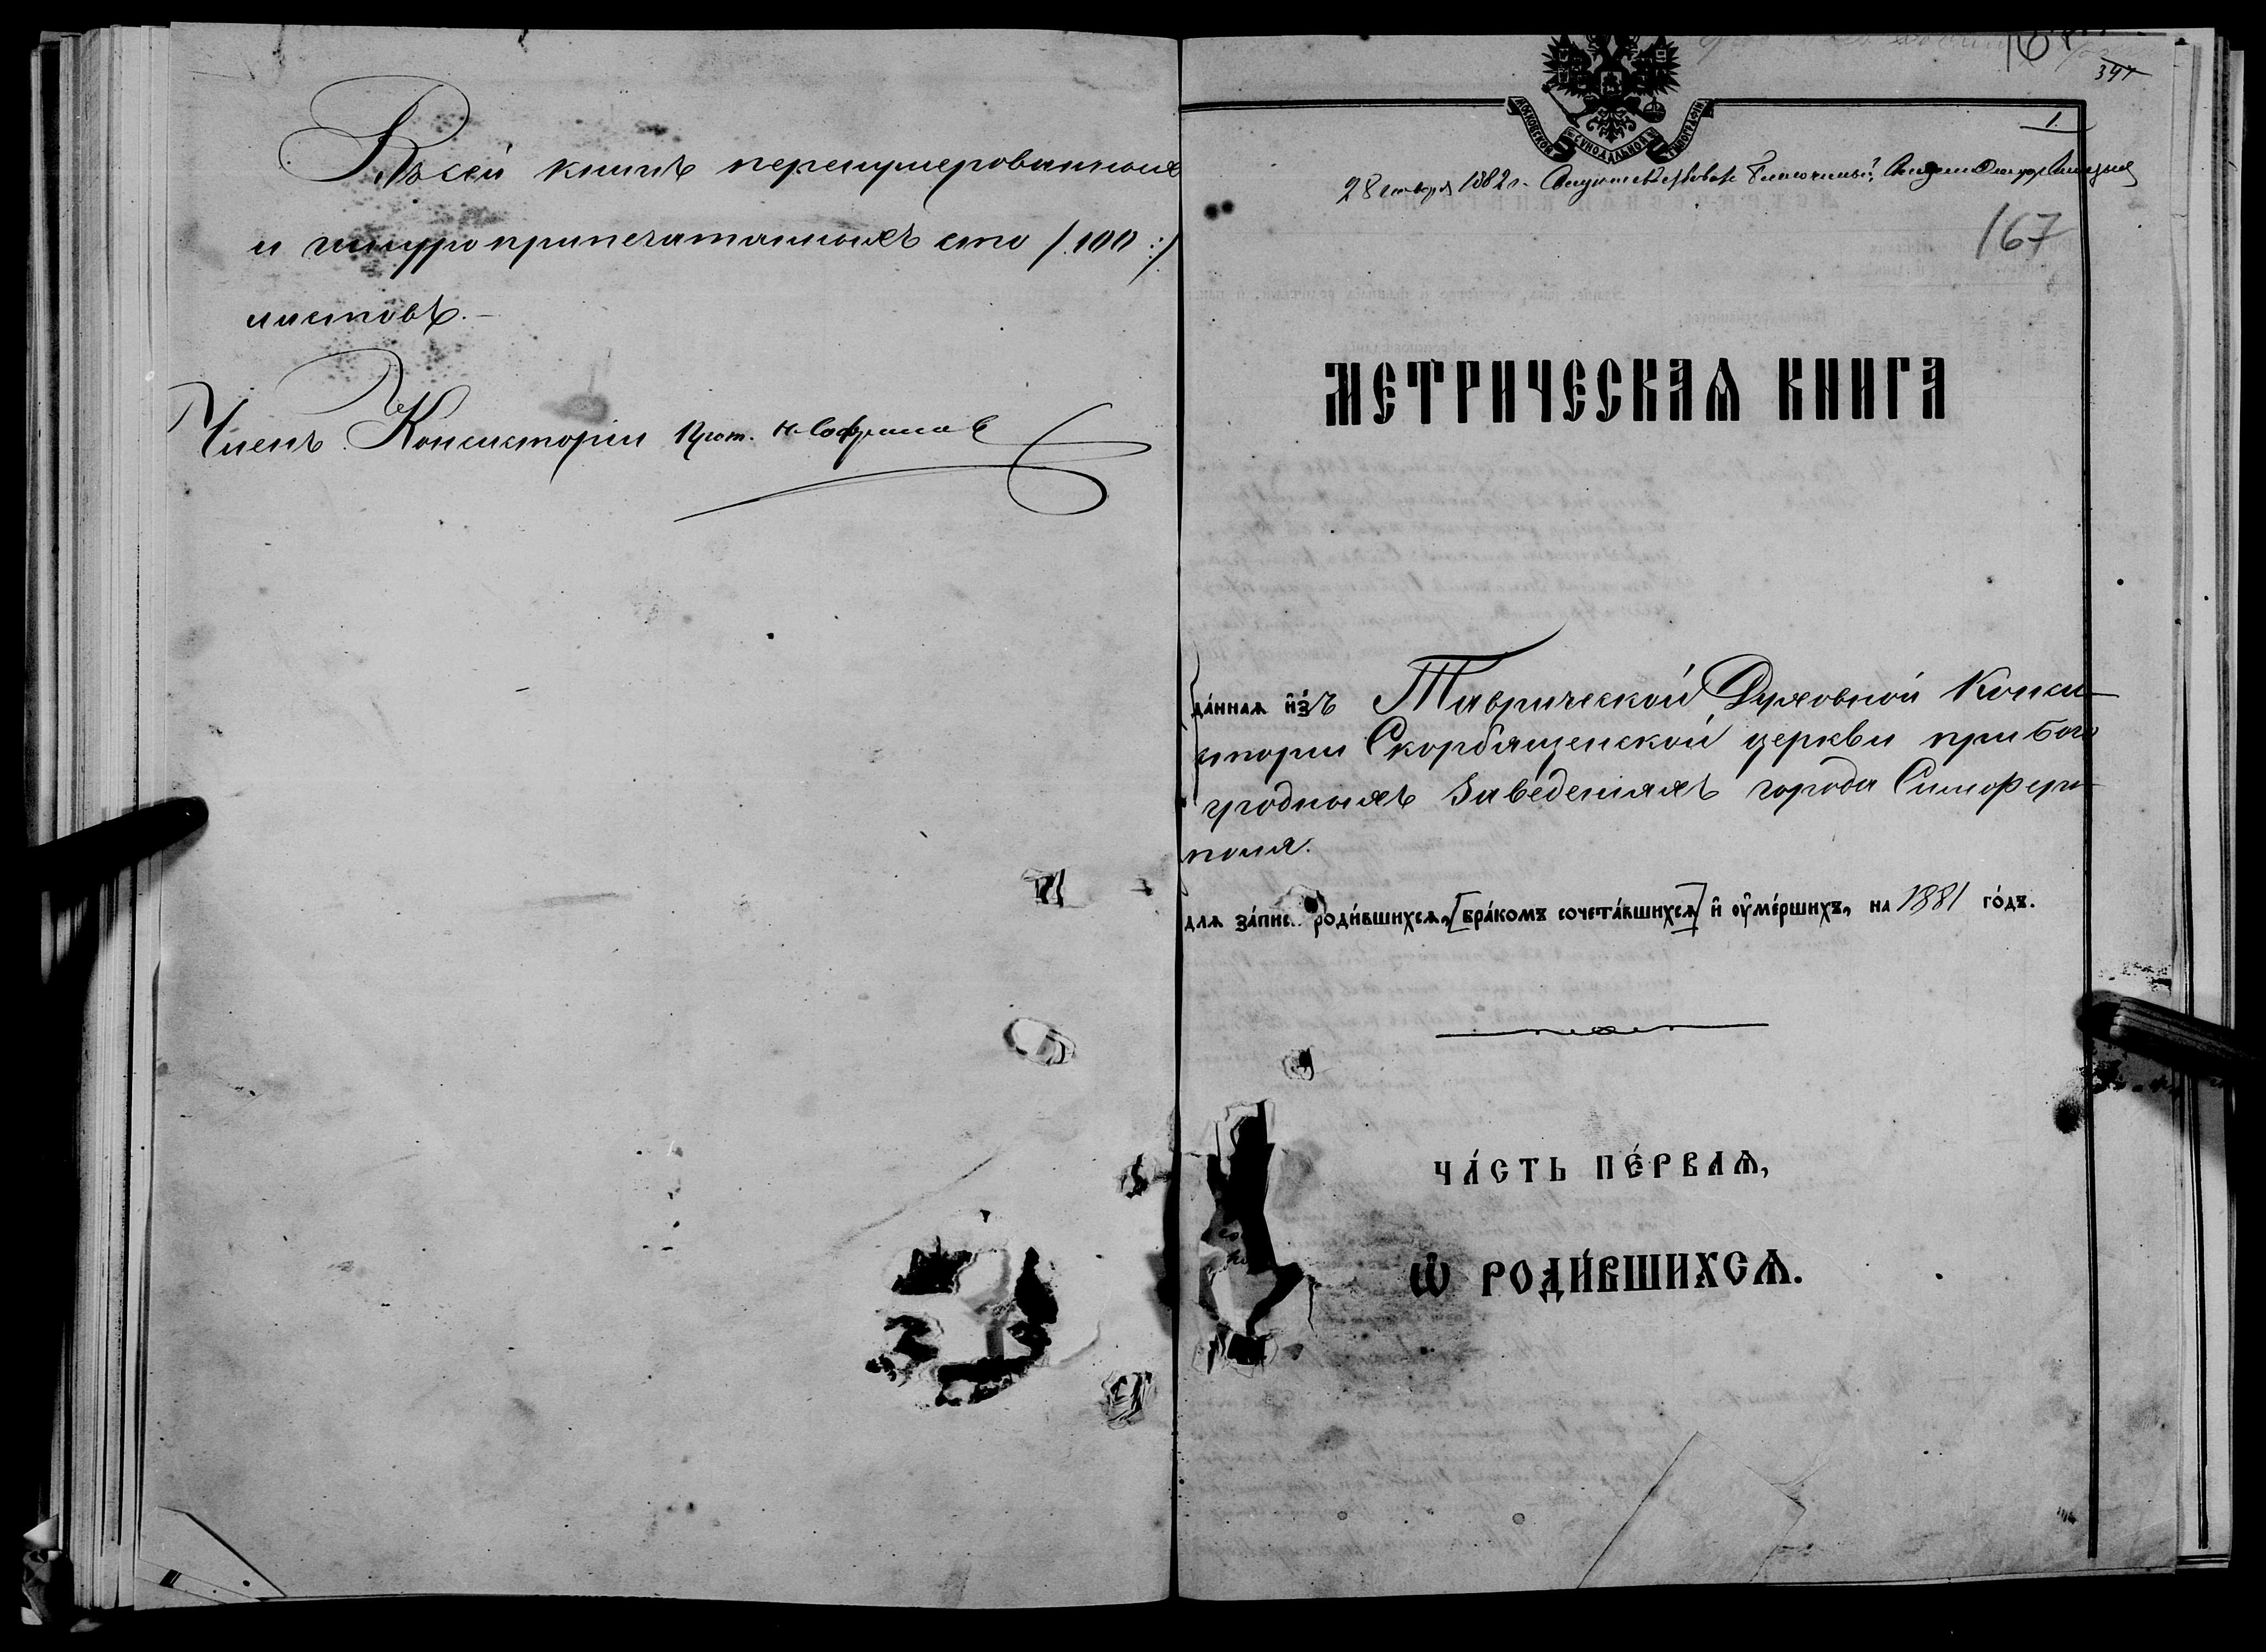 Въ сей книгѣ перенумерованныхъ
и шнуроприпечатанныхъ сто /:100:/
листовъ.-
Членъ Консисторіи Прот.
347
1.
МОСКОВСКОЙ СѴНОДАЛЬНОЙ ТИПОГРАФІИ
28 января 1882 г. Свидѣтельствовалъ Благочинный
167
МЕТРИЧЕСКАѦ КНИГА
да́ннаѧ и҆́зъ Таврической Духовной Конси-
сторіи Скорбященской церкви при Бого
угодныхъ Заведеніяхъ города Симферо-
поля.
длѧ за́пис роди́вшихсѧ, [бра́комъ сочета́вшихсѧ] и҆ ᲂу҆ме́ршихъ, на 1881 го́дъ.
ЧА́СТЬ ПЕ́РВАѦ,
Ѽ РОДИ́ВШИХСѦ.